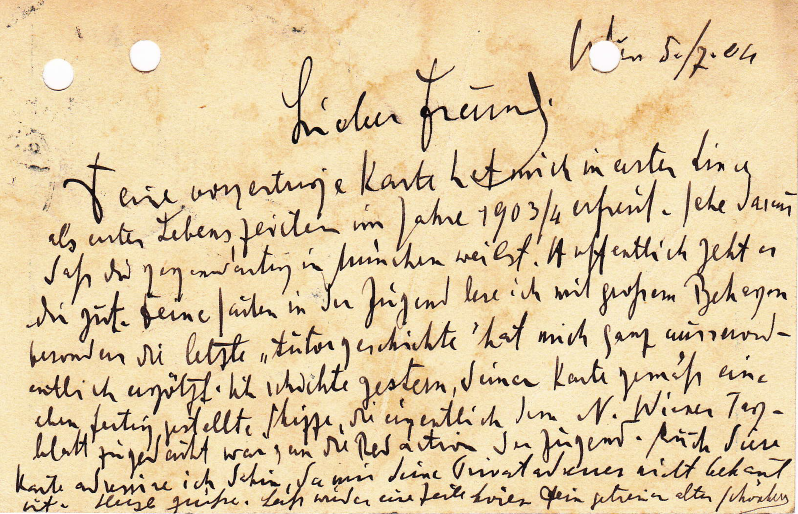 Wien 5./7.04
Lieber Freund.
Deine vorgestrige Karte hat mich in erster Linie
als erstes Lebenszeichen im Jahre 1903/4 erfreut. Sehe daraus
daß du gegenwärtig in München weilst. Hoffentlich geht es
dir gut. Deine Sachen in der Jugend lese ich mit großem Behagen
besonders die letzte „Autorgeschichte" hat mich ganz ausserord-
entlich ergötzt. Ich schickte gestern, deiner Karte gemäß eine
eben fertig gestellte Skizze, die eigentlich dem N. Wiener Tag-
blatt zugedacht war an die Redaction der Jugend. Auch diese
Karte adressire ich dahin, da mir deine Privatadresse nicht bekannt
ist. Herzl. Grüße. Laß wieder eine Zeile hören Dein getreuer alter